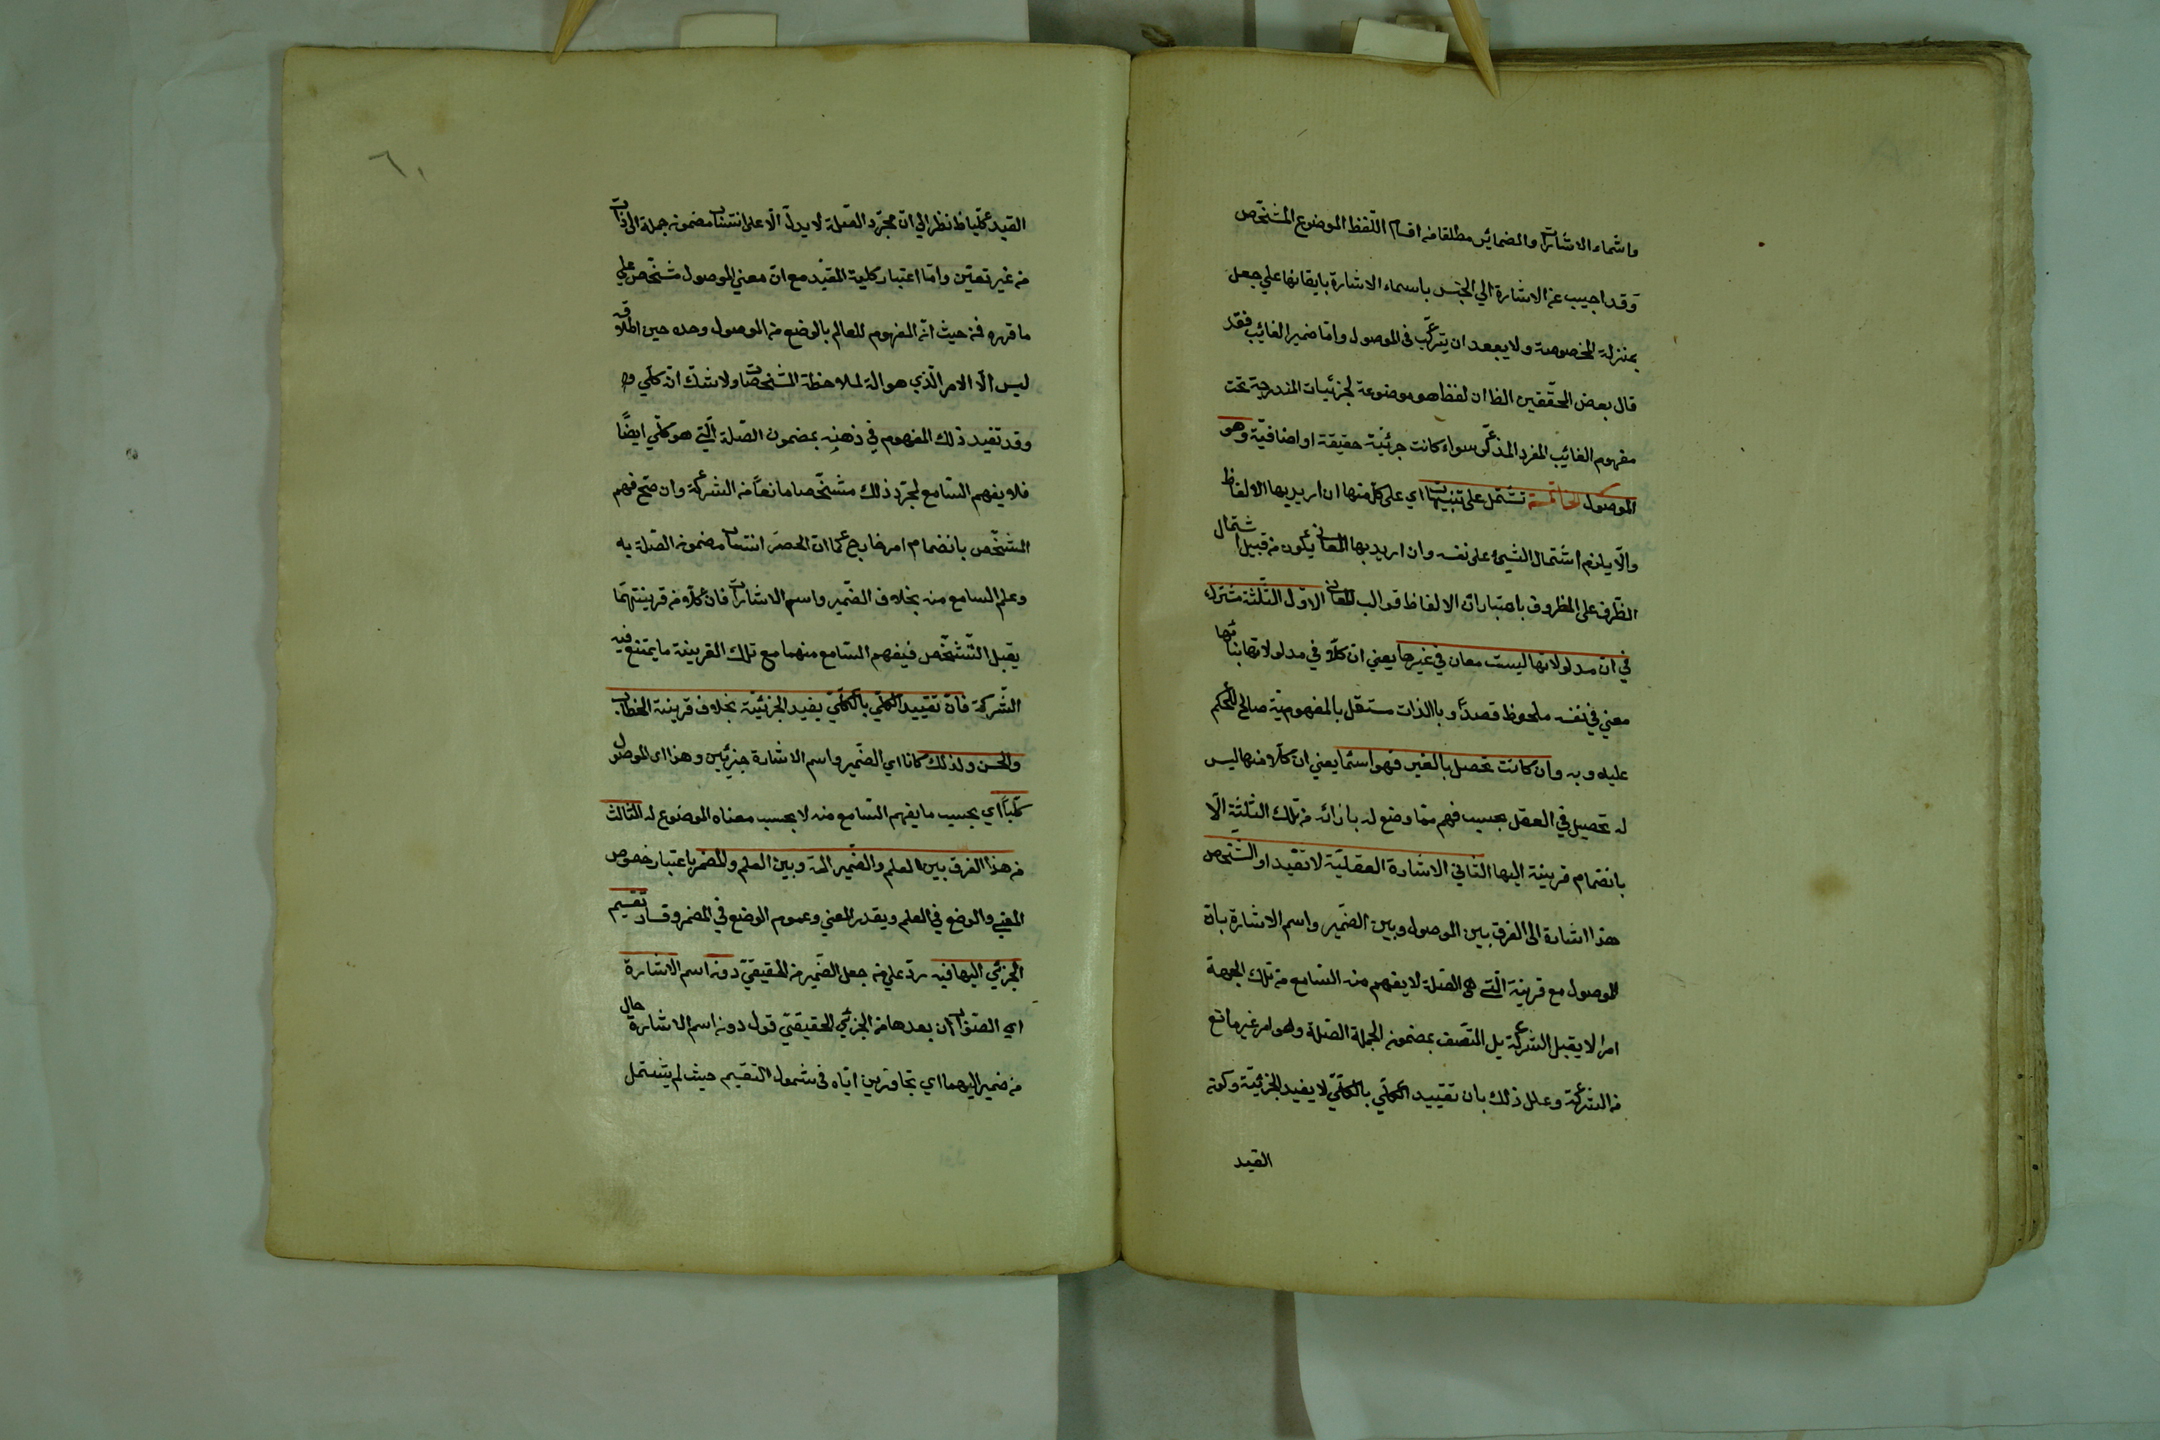 واسماء الاشارات والضمائر مطلقا من اقسام اللفظ الموضوع المشخص
وقد اجيب عن الاشارة الي الجنس باسماء الاشارة بايقانها علي جعل
بمنزلة المخصوصة ولا يبعد ان يتركب في الموصول واما ضمير الغائب فقد
قال بعض المحققين الظ ان لفظ هو موضوعة لجزئيات المندرجة تحت
مفهوم الغائب المفرد المذكر سواء كانت جزئية حقيقة او اضافية وهو
الموصول الخاتمة تشتمل على تنبيهات اي على كل منها ان اريد بها الالفاظ
والا يلزم اشتمال الشيء على نفسه وان اريد بها المعاني يكون من قبيل اشتمال
الظرف على المظروف باعتبار ان الالفاظ قوالب للمعاني الاول الثلثة مشترك
في ان مدلولاتها ليست معان في غيرها يعني ان كلا في مدلولاتها بتمامها
معني في نفسه ملحوظ قصدا وبالذات مستقل بالمفهومية صالح للحكم
عليه وبه وان كانت تحصل بالغير فهو اسما يعني ان كلا منها ليس
له تحصيل في العقل بحسب فهم مما وضع له بازائه من تلك الثلثة الا
بانضمام قرينة اليها الثاني الاشارة العقلية لا تفيد او التشخص
هذا اشارة الى الفرق بين الموصول وبين الضمير واسم الاشارة بان
الموصول مع قرينة التي هي الصلة لا يفهم منه السامع من تلك الجهة
امرا لا يقبل الشركة بل المتصف بمضمون الجملة الصلة وهو امر غير مانع
من الشركة وعلل ذلك بان تقييد الكلي بالكلي لا يفيد الجزئية وكونه
القيد
٦٠
القيد كليا ظ نظرا الي ان مجرد الصلة لا يدل الا على انتساب مضمون جملة الى ذات
من غير تعين واما اعتبار كلية المقيد مع ان معني الموصول مشخص علي
ما قرره فمن حيث انه المفهوم للعالم بالوضع من الموصول وحده حين اطلاقه
ليس الا الامر الذي هو الة لملاحظة المشخصات ولا شك انه كلي
وقد تقيد ذلك المفهوم في ذهنه بمضمون الصلة التي هو كلي ايضا
فلا يفهم السامع لمجرد ذلك مشخصا مانعا من الشركة وان صح فهم
المشخص بانضمام امر خارج كما ان الحصر انتساب مضمون الصلة به
وعلم السامع منه بخلاف الضمير واسم الاشارات فان كلا من قرينتهما
يقبل التشخص فيفهم السامع منهما مع تلك القرينة ما يمتنع فيه
الشركة فان تقييد الكلي بالكلي يفيد الجزئية بخلاف قرينة الخطاب
والحس ولذلك كانا اي الضمير واسم الاشارة جزئيين وهذا اي الموصول
كليا اي بحسب ما يفهم السامع منه لا بحسب معناه الموضوع له الثالث
من هذا الفرق بين العلم والضمير المة وبين العلم والمضمر باعتبار خصوص
المعني والوضع في العلم ويقدر المعني وعموم الوضع في المضمر وفساد تقسيم
الجزئي اليها فيه رد علي من جعل الضمير من الحقيقي دون اسم الاشارة
اي الصواب ان يعدها من الجزئي الحقيقي قول دون اسم الاشارة حال
من ضمير اليهما اي تجاوزين اياه في شمول التقسيم حيث لم يشتمل